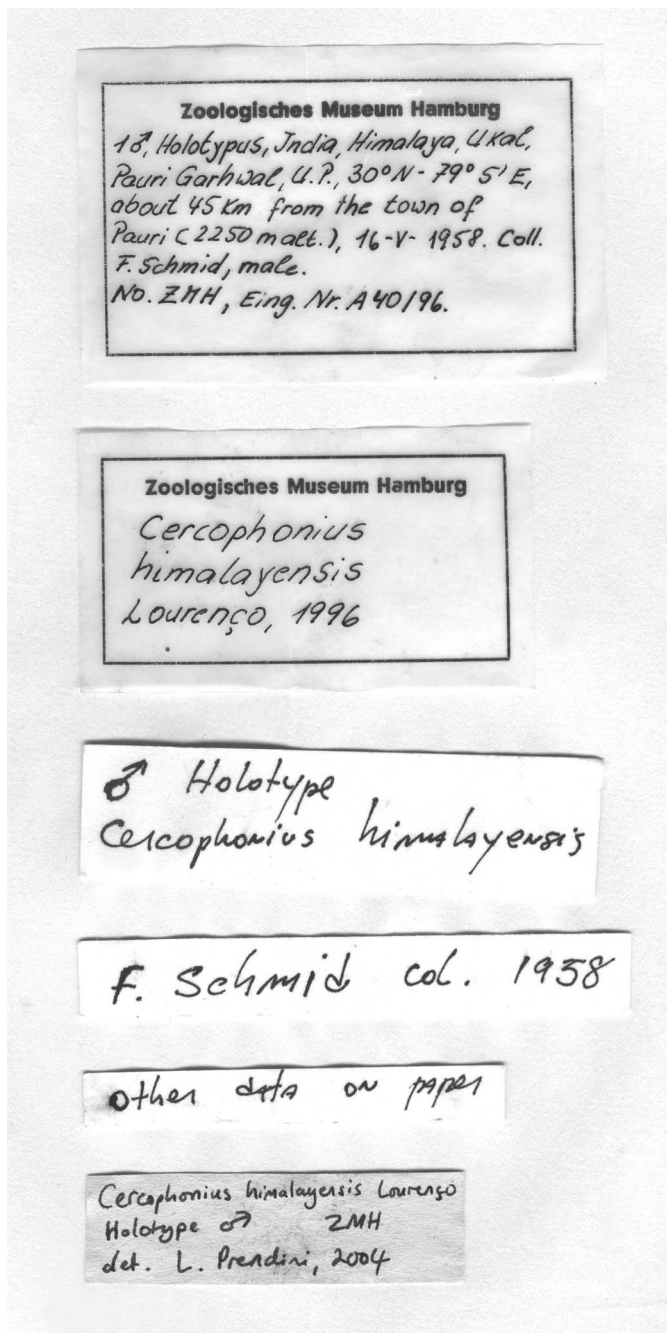 Zoologisches Museum Hamburg
1♂, Holotypus, India, Himalaya, Ukal,
Pauri Garhwal, U.P., 30°N - 79° 5' E,
about 45 Km from the town of
Pauri (2250 m alt.), 16-V-1958. Coll.
F. Schmid, male.
No. ZMH, Eing. Nr. A40/96.
Zoologisches Museum Hamburg
Cercophonius
himalayensis
Lourenço, 1996
♂ Holotype
Cercophonius himalayensis
F. Schmid col. 1958
other data on paper
Cercophonius himalayensis Lourenço
Holotype ♂ ZMH
det. L. Prendini, 2004